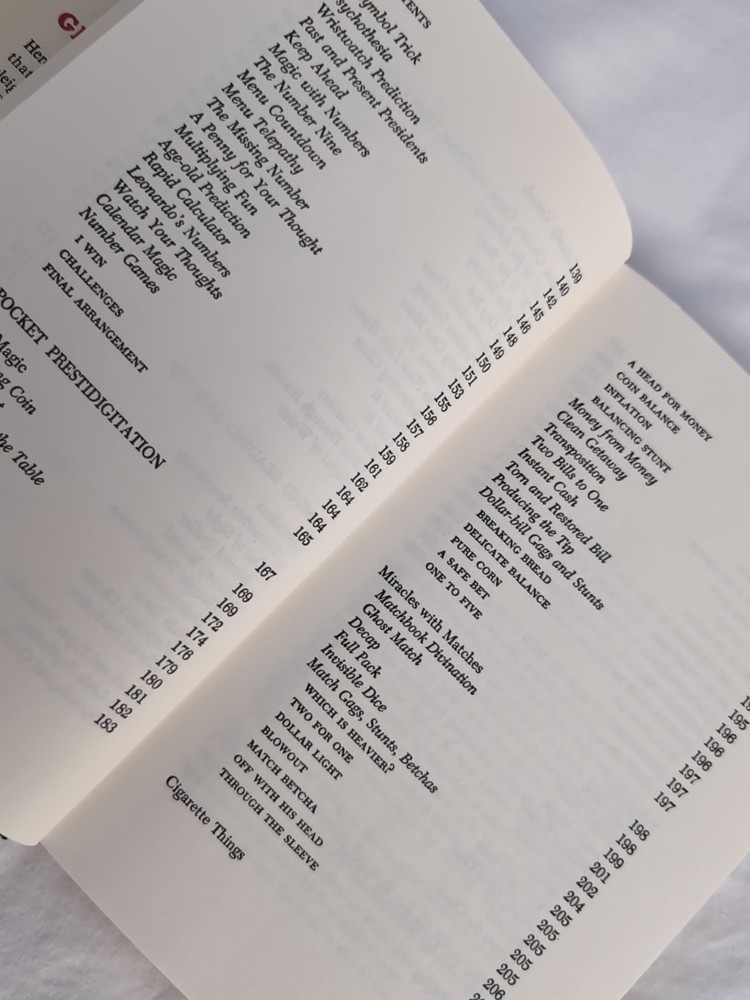 that
ENTS
ymbol Trick
sychothesia
Wristwatch Prediction
Past and Present Presidents
Keep Ahead
Magic with Numbers
The Number Nine
Menu Countdown
Menu Telepathy
The Missing Number
A Penny for Your Thought
Multiplying Fun
Age-old Prediction
Rapid Calculator
Leonardo's Numbers
Watch Your Thoughts
Calendar Magic
Number Games
I WIN
CHALLENGES
FINAL ARRANGEMENT
POCKET PRESTIDIGITATION
Magic
ng Coin
t
the Table
139
140
142
145
146
148
149
150
151
153
155
156
157
158
159
161
162
164
164
165
167
169
169
172
174
176
179
180
181
182
183
A HEAD FOR MONEY
COIN BALANCE
INFLATION
BALANCING STUNT
Money from Money
Clean Getaway
Transposition
Two Bills to One
Instant Cash
Torn and Restored Bill
Producing the Tip
Dollar-bill Gags and Stunts
BREAKING BREAD
DELICATE BALANCE
PURE CORN
A SAFE BET
ONE TO FIVE
Miracles with Matches
Matchbook Divination
Ghost Match
Decap
Full Pack
Invisible Dice
Match Gags, Stunts, Betchas
WHICH IS HEAVIER?
TWO FOR ONE
DOLLAR LIGHT
BLOWOUT
MATCH BETCHA
OFF WITH HIS HEAD
THROUGH THE SLEEVE
Cigarette Things
195
196
196
197
197
198
198
199
201
202
204
205
205
205
205
206